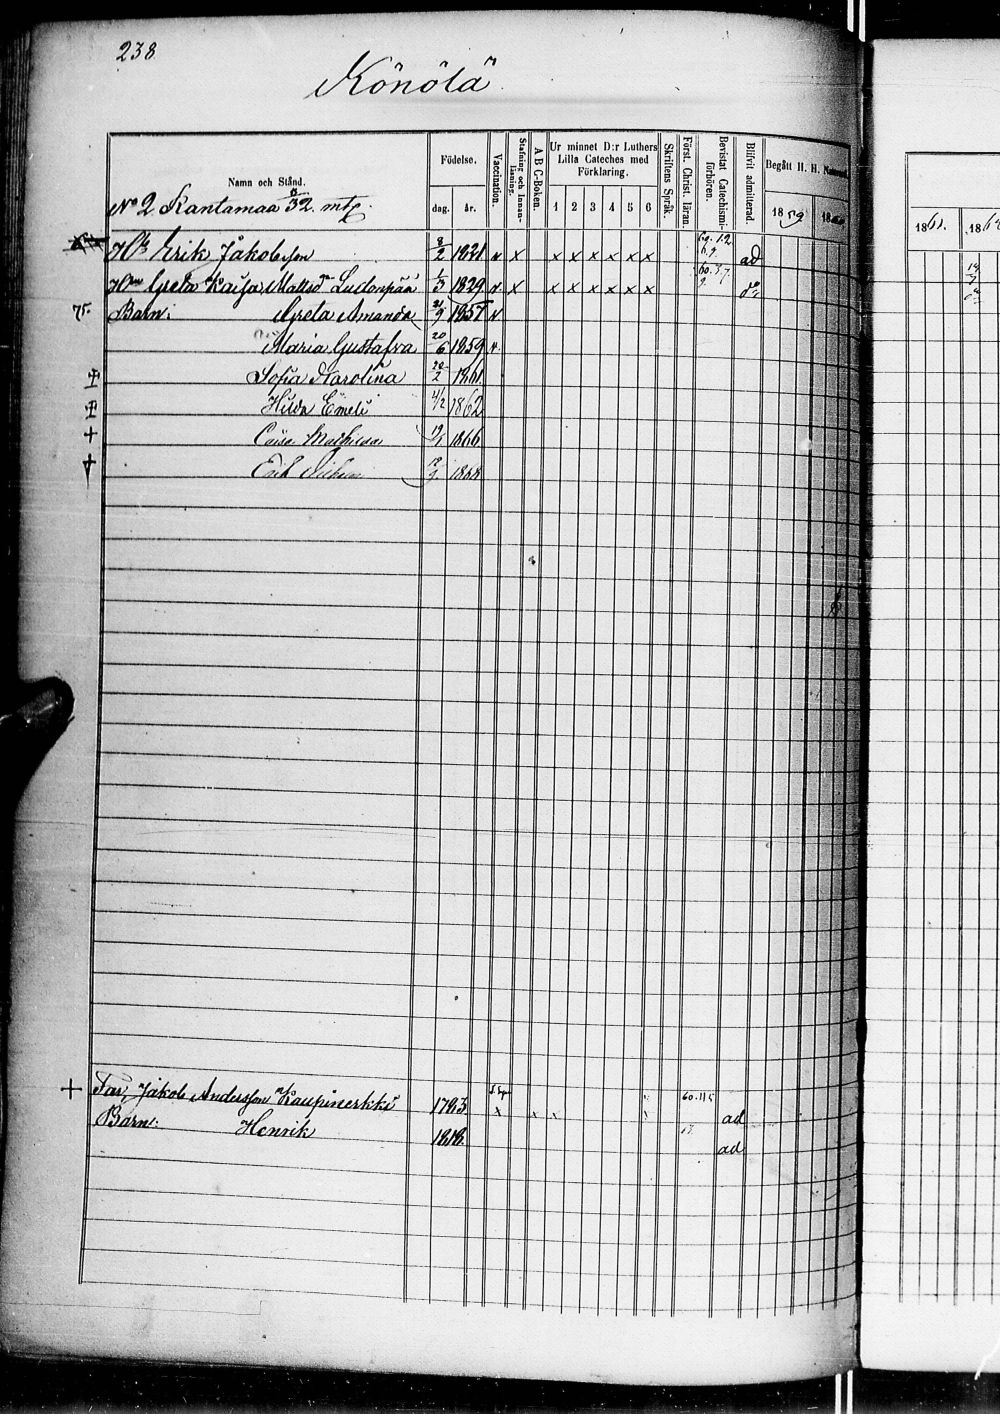 238
Könölä
Namn och Stånd.
Födelse.
dag. år.
Vaccination.
Stafning och Innanläsning.
A B C-Boken.
Ur minnet D:r Luthers Lilla Cateches med Förklaring.
1 2 3 4 5 6
Skriftens Språk.
Först. Christ. läran.
Bevistat Catechismiförhören.
Blifvit admitterad.
Begått H. H. Nattvard
1859 18
1861. 186
No 2 Kantamaa 5/32 mtg.
Erik Jakobsson 8/2 1821 v x x x x x x x ad
Greta Kaisa Mattsdr Ludonpää 1/3 1829 v x x x x x x x do
75. Barn: Greta Amanda 21/9 1857 v
Maria Gustafva 20/6 1859 v
Sofia Karolina 20/2 1861
Hilda Emeli 4/2 1862
Mathilda 1866
Erik 1868
Far, Jakob Andersson Kaupinerkki 1783 60. ad
Barn: Henrik 1818 ad